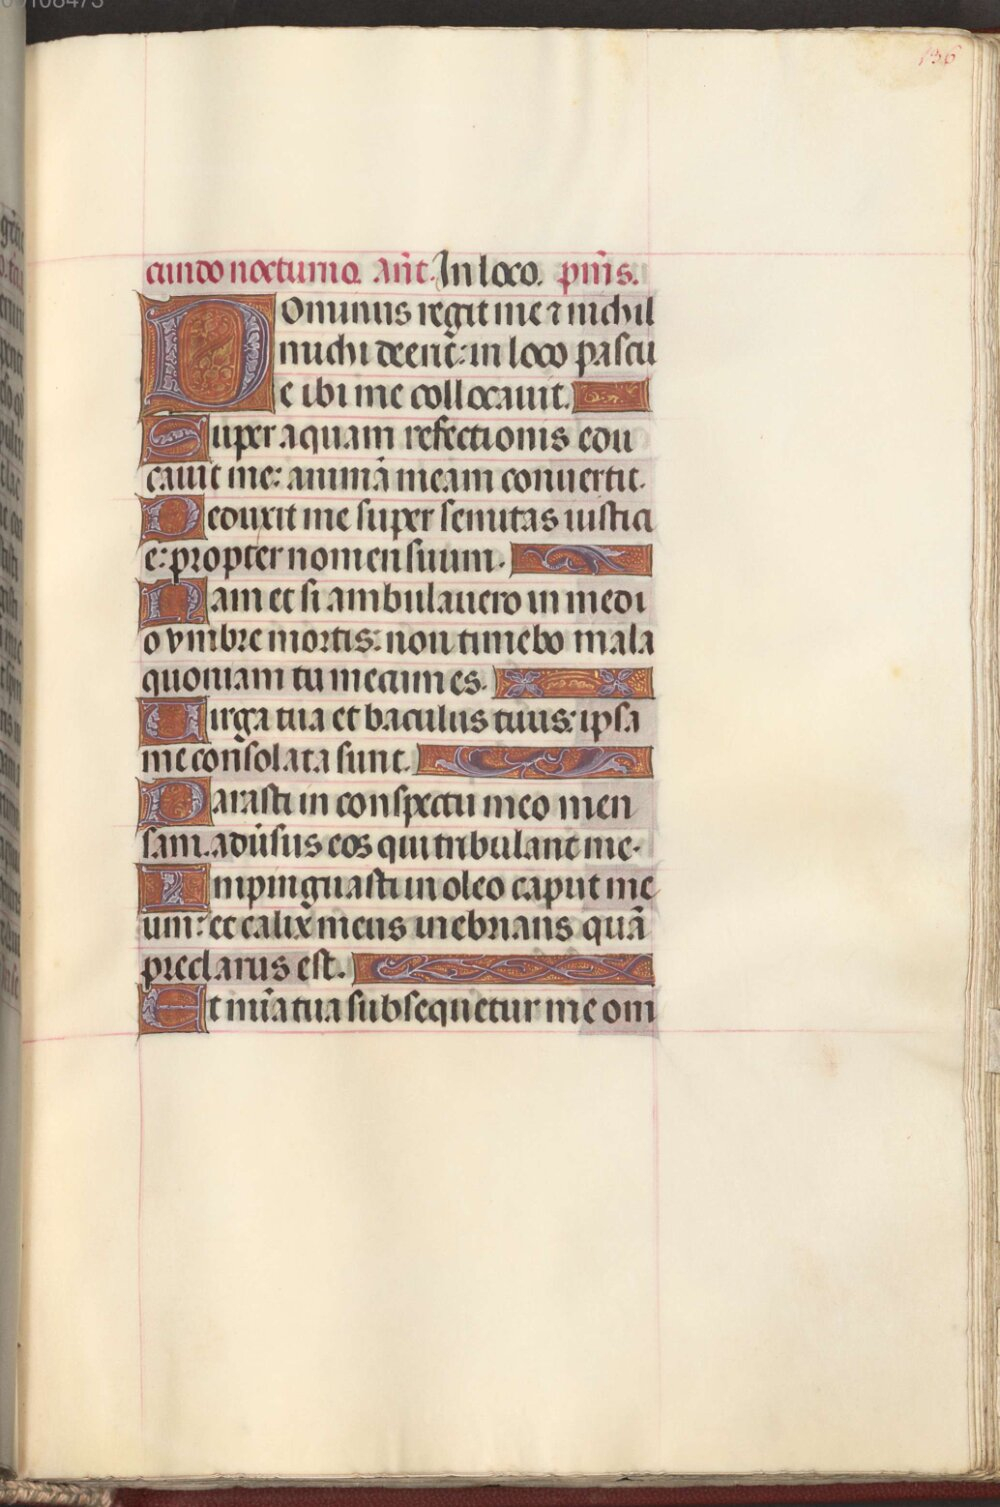 136
cundo nocturno. Ant̄. In loco. pm̄s.
Dominus regit me ⁊ nichil
michi deerit: in loco pascu
e ibi me collocauit.
Super aquam refectionis edu
cauit me: animā meam conuertit.
Deduxit me super semitas iustici
e: propter nomen suum.
Nam et si ambulauero in medi
o vmbre mortis: non timebo mala
quoniam tu mecum es.
Uirga tua et baculus tuus: ipsa
me consolata sunt.
Parasti in conspectu meo men
sam. adūsus eos qui tribulant me.
Inpinguasti in oleo caput me
um: et calix meus inebrians quā
preclarus est.
Et mīa tua subsequetur me om